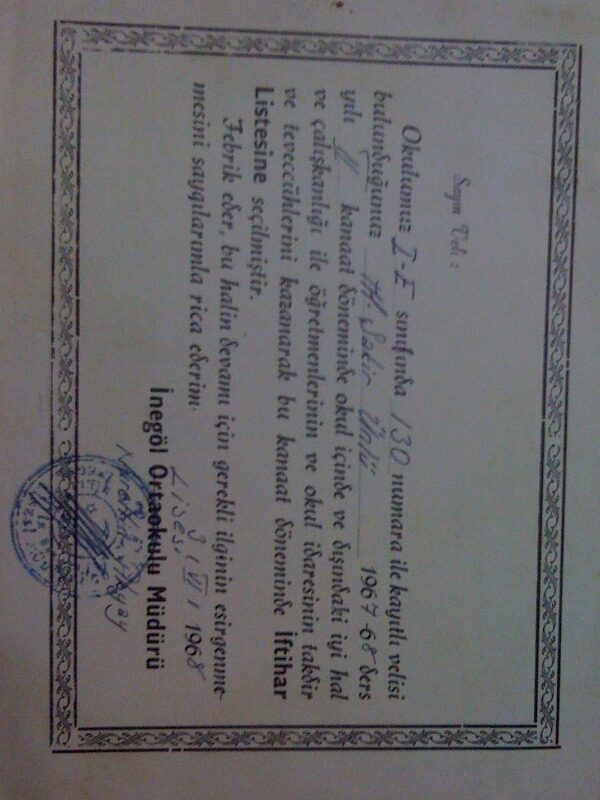 Sayın Veli :
Okulumuz I-E sınıfında 130 numara ile kayıtlı velisi
bulunduğunuz M. Şakir Ünlü 1967-68 ders
yılı II kanaat döneminde okul içinde ve dışındaki iyi hal
ve çalışkanlığı ile öğretmenlerinin ve okul idaresinin takdir
ve teveccühlerini kazanarak bu kanaat döneminde İftihar
Listesine seçilmiştir.
Tebrik eder, bu halin devamı için gerekli ilginin esirgenme-
mesini saygılarımla rica ederim.
3 / VI / 1968
Lisesi
İnegöl Ortaokulu Müdürü